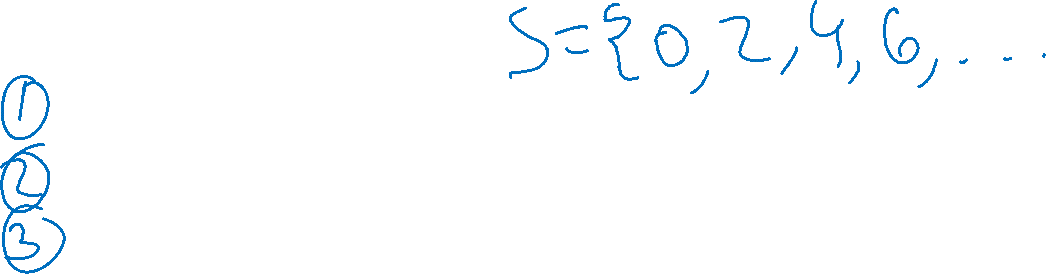 S={0,2,4,6,....
①
②
③